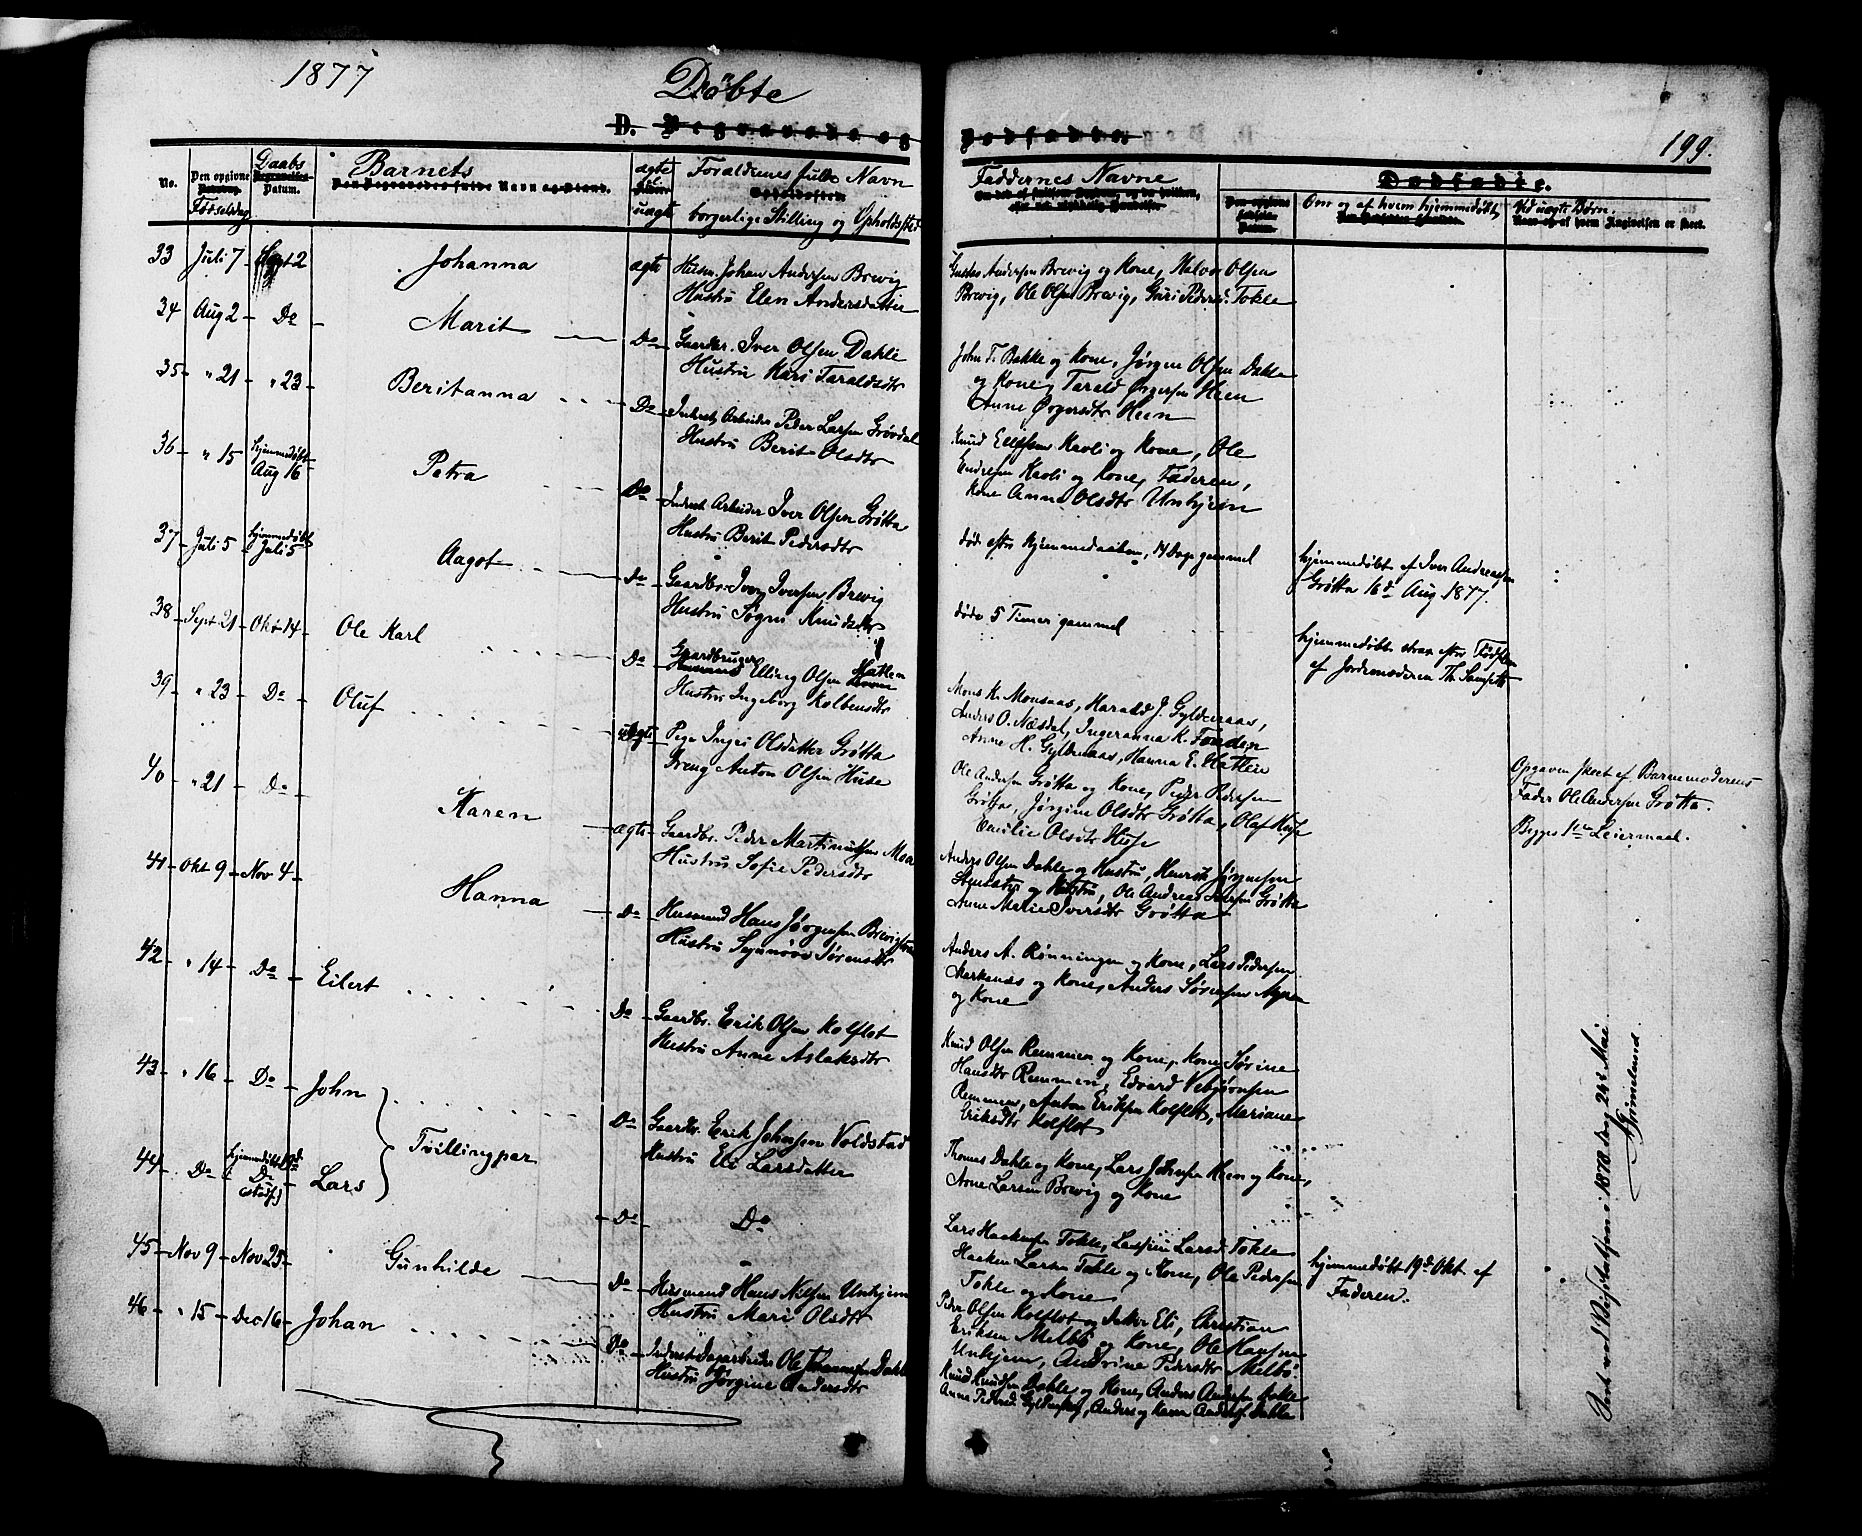 1877
Döbte
D. Begravede og
Dødfødte.
199.
No.
Den opgivne
Fødselsdag
Daabs
Begravelses-
Datum.
Barnets
Den Begravedes fulde Navn og Stand.
ægte
uægte
Forældrenes fulde Navn
borgerlige Stilling og Opholdssted
Faddernes Navne
Dødfødte.
Om og af hvem hjemmedøbt
Ved uægte Børn,
Naar og af hvem Angivelsen er skeet.
33 Juli 7 Sept 2 Johanna ægte Husm. Johan Andersen Brevig
Hustru Elen Andersdatter
Gustav Andersen Brevig og Kone, Halvor Olsen
Brevig, Ole Olsen Brevig, Guri Pedersd. Tokle
34 Aug 2 Do Marit Do Gaardbr. Iver Olsen Dahle
Hustru Kari Taraldsdtr
John T. Bakke og Kone, Jørgen Olsen Dahle
og Kone, Tarald Ørgersen Heen
Anne Ørgersdtr Heen
35 " 21 " 23 Beritanna Do Inderst, Arbeider Peder Larsen Grøvdal
Hustru Berit Olsdtr
Knud Ellefsen Kavli og Kone, Ole
Endresen Kavli og Kone, Faderen,
Kone Anne Olsdtr Unhjem
36 " 15 hjemmedøbt
Aug 16 Petra Do Inderst Arbeider Iver Olsen Grøtta
Hustru Berit Pedersdtr
død efter Hjemmedaaben, 14 Dage gammel
hjemmedøbt af Iver Andreassen
Grøtta 16d Aug 1877.
37 Juli 5 hjemmedøbt
Juli 5 Aagot Do Gaardbr. Iver Iversen Brevig
Hustru Søgni Knudsdtr
døde 5 Timer gammel
hjemmedøbt strax efter Fødslen
af Jordemoderen Th.
38 Sept 21 Okt 14 Ole Karl Do Gaardbruger
Husmand Elling Olsen Hatlen
Hustru Ingeborg Kolbensdtr
Mons K. Monsaas, Harald J. Gyldenaas,
Anders O. Næsdal, Ingeranna K.
Anne H. Gyldenaas, Hanna E. Hatlen
39 " 23 Do Oluf uægte Pige Inger Olsdatter Grøtta
Dreng Anton Olsen Huse
Ole Andersen Grøtta og Kone, Peder Pedersen
Grøtta, Jørgine Olsdtr Grøtta, Olaf Huse
Emilie Olsdtr Huse
Opgaven skeet af Barnemoderens
Fader Ole Andersen Grøtta.
Begges 1ste Leiermaal.
40 " 21 Do Karen ægte Gaardbr. Peder Martinussen Moa
Hustru Sofie Pedersdtr
Anders Olsen Dahle og Hustru, Henrik Jørgensen
og Hustru, Ole Andreas Grøtta
Anne Marie Iversdtr Grøtta
41 Okt 9 Nov 4 Hanna Do Husmand Hans Jørgensen
Hustru Synnøve Sørensdtr
Anders A. Rønningen og Kone, Lars Pedersen
og Kone, Anders Sørensen
og Kone
42 " 14 Do Eilert Do Gaardbr. Erik Olsen Kolflot
Hustru Anne Aslaksdtr
Knud Olsen Remmen og Kone, Kone Sørine
Hansdtr Remmen, Edvard Vebjörnsen
Remmen, Anton Eriksen Kolflot, Mariane
Eriksdtr Kolflot
43 " 16 Do John Tvillingpar Do Gaardbr. Erik Johnsen Voldstad
Hustru Eli Larsdatter
Thomas Dahle og Kone, Lars Johnsen Heen og Kone,
Arne Larsen Brevig og Kone
44 Do hjemmedøbt 19d
Do Lars Do Do
Lars Haakensen Tokle, Larsd. Tokle
Haaken Larsen Tokle og Kone, Ole Pedersen
Tokle og Kone
hjemmedøbt 19d Okt af
Faderen.
45 Nov 9 Nov 25 Gunhilde Do Husmand Hans Nilsen Unhjem
Hustru Mari Olsdtr
Peder Olsen Kolflot og Datter Eli, Christian
Eriksen Melbö og Kone, Ole Hansen
Unhjem, Andrine Pedersdtr Melbö.
46 " 15 Dec 16 Johan Do Inderst Dagarbeider Ole Johannesen Dahle
Hustru Jørgine Andersdtr
Knud Knudsen Dahle og Kone, Anders Andersen Tokle
Anne Pedersd. Anders og Karen Dahle
Seet ved Visitatsen i 1878 dag 24de Mai